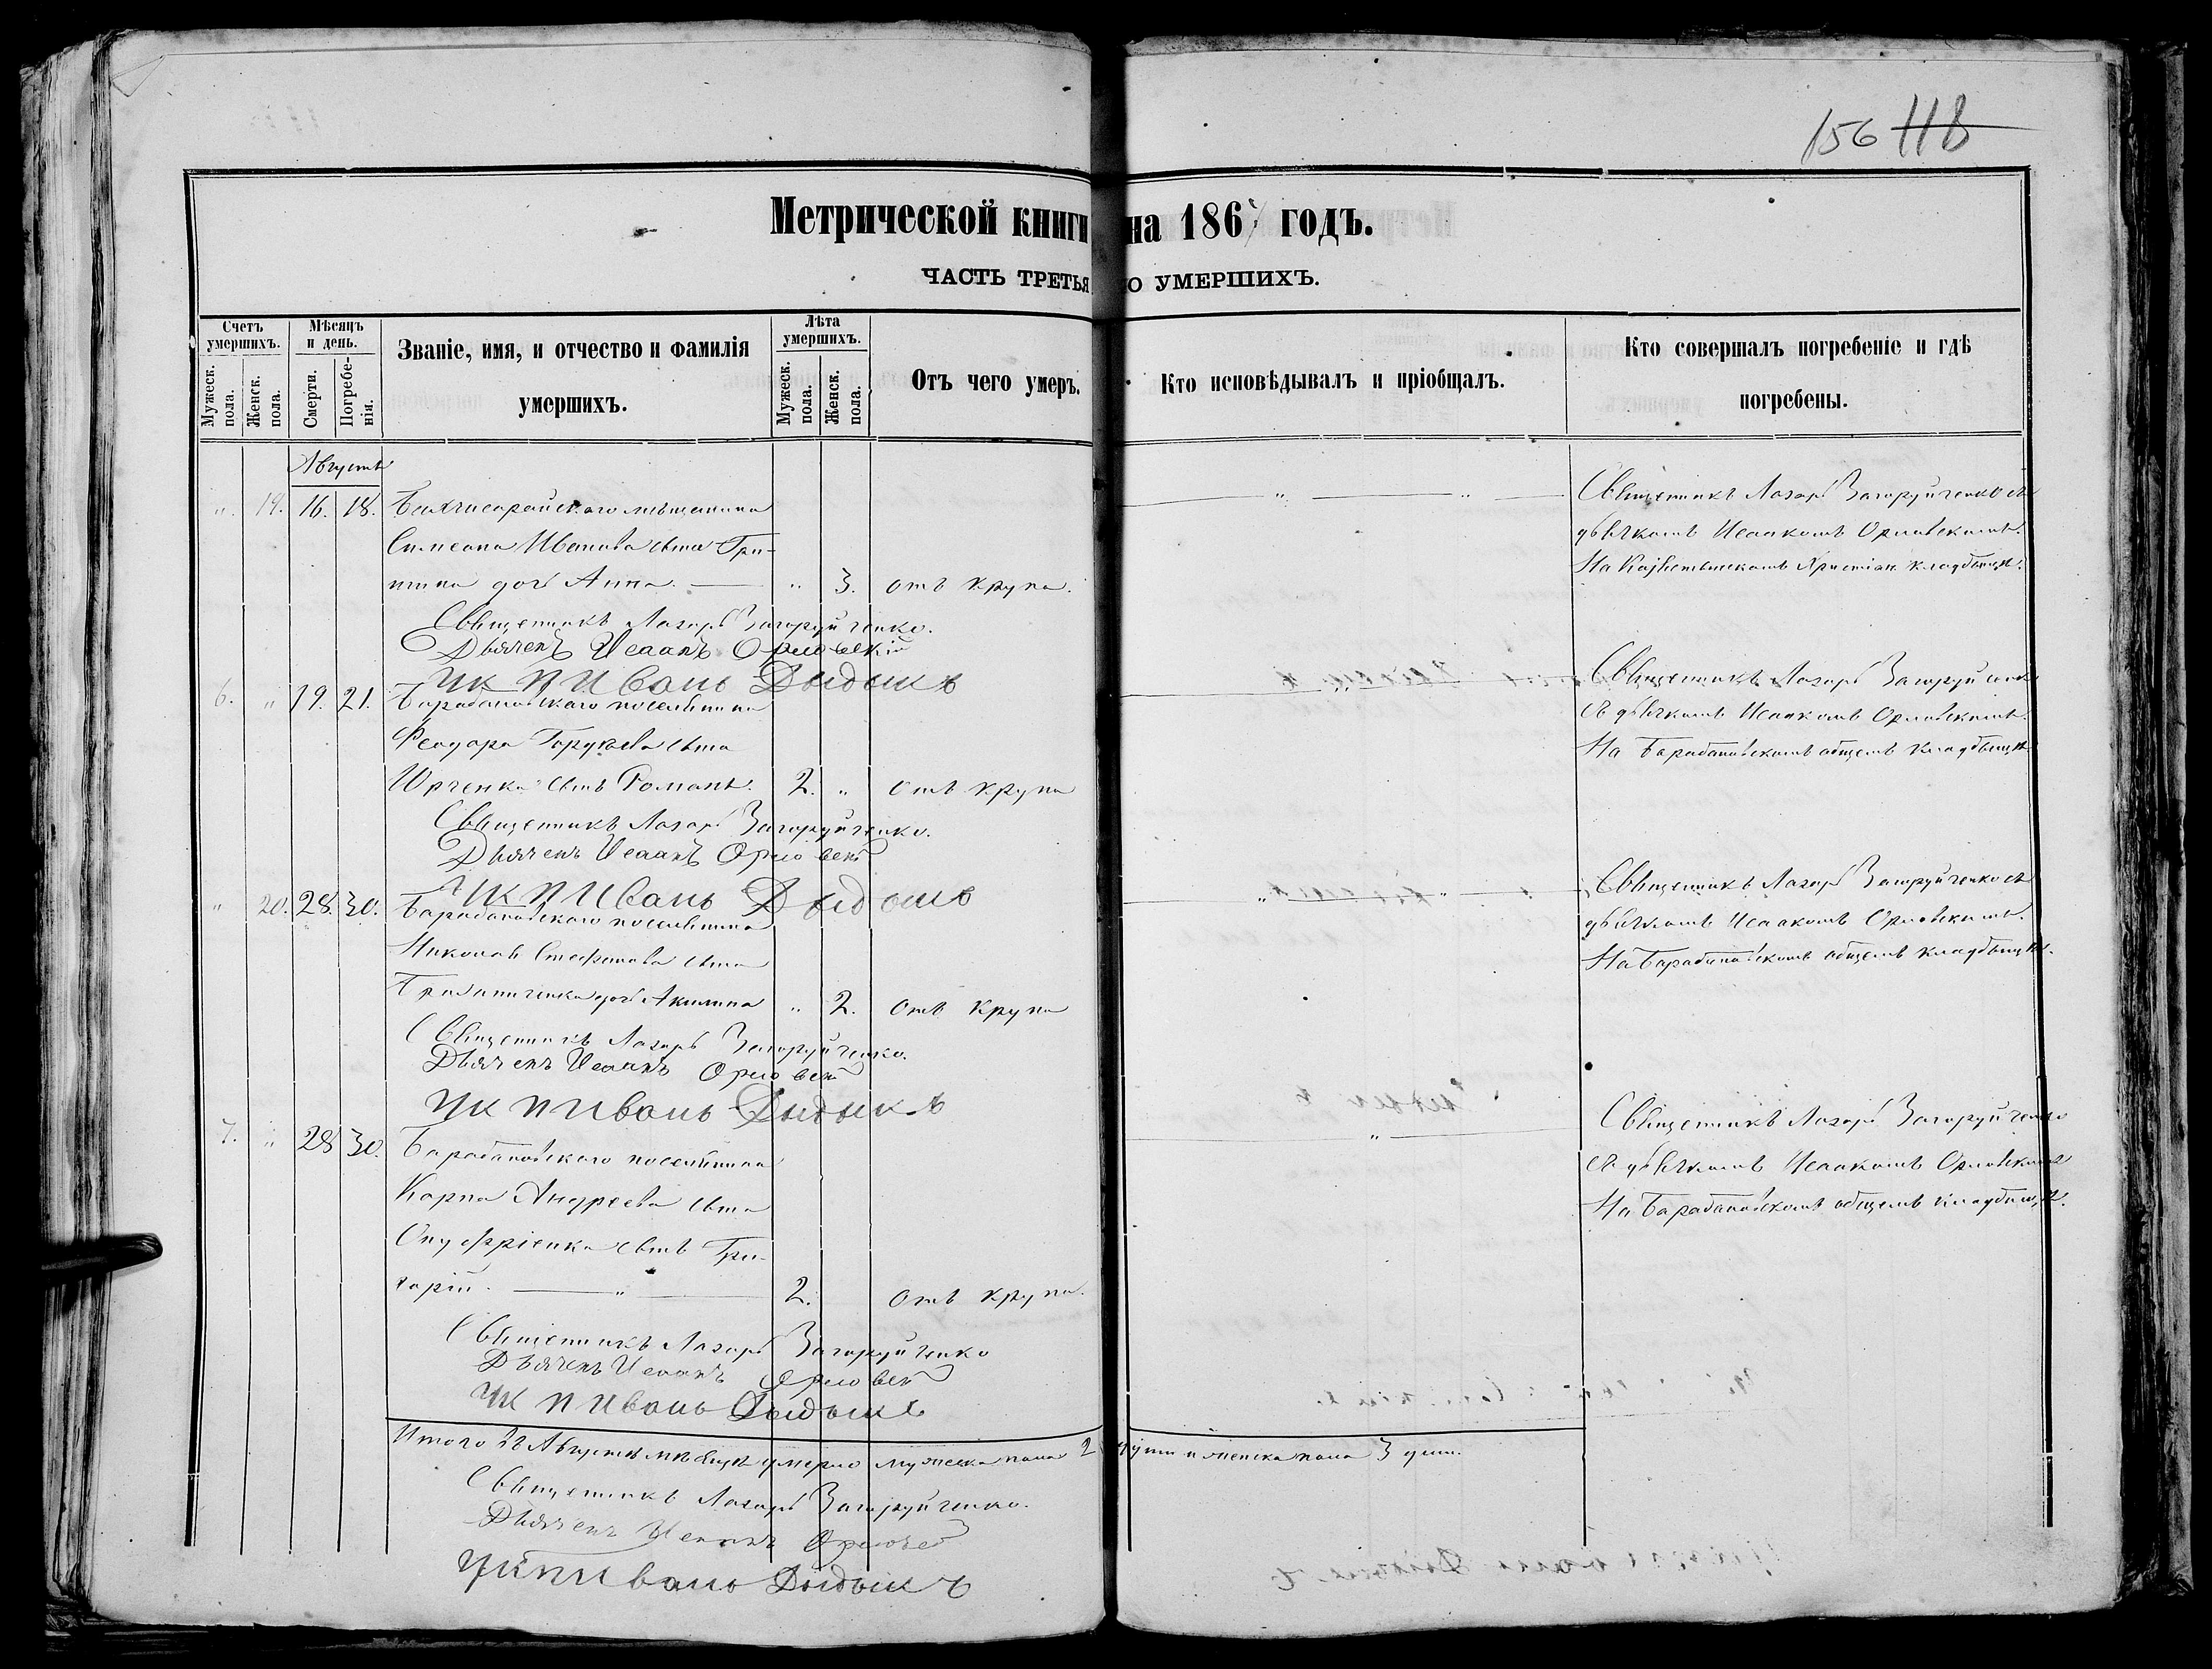 156 118
Метрической книги на 186 годъ.
ЧАСТЬ ТРЕТЬЯ О УМЕРШИХЪ.
Счетъ умершихъ.
Мужеск. пола.
Женск. пола.
Мѣсяцъ и день.
Смерти.
Погребенія.
Званіе, имя, и отчество и фамилія
умершихъ.
Лѣта умершихъ.
Мужеск. пола.
Женск. пола.
Отъ чего умеръ.
Кто исповѣдывалъ и пріобщалъ.
Кто совершалъ погребеніе и гдѣ
погребены.
Августъ
" 19. 16. 18. Бахчисарайскаго мѣщанина
Симеона Иванова сына Гри-
дочь Анна. " 3. отъ крупа.
Священникъ Лазарь Загоруйченко съ
дьячкомъ Исаакомъ Орловскимъ.
На Христіан. кладбищѣ.
Священникъ Лазарь Загоруйченко.
Дьячекъ Исаакъ Орловскій
Иванъ Дыдыкъ
6. " 19. 21. Барабановскаго поселянина
Феодора сына
Юрченка сынъ Романъ. 2. " отъ крупа
Священникъ Лазарь Загоруйченко
съ дьячкомъ Исаакомъ Орловскимъ.
На Барабановскомъ общемъ кладбищѣ
Священникъ Лазарь Загоруйченко.
Дьячекъ Исаакъ Орловскій
Иванъ Дыдыкъ
" 20. 28. 30. Барабановскаго поселянина
Николая Стефанова сына
дочь Акилина " 2. отъ крупа
Священникъ Лазарь Загоруйченко съ
дьячкомъ Исаакомъ Орловскимъ.
На Барабановскомъ общемъ кладбищѣ.
Священникъ Лазарь Загоруйченко.
Дьячекъ Исаакъ Орловскій
Иванъ Дыдыкъ
7. " 28 30. Барабановскаго поселянина
Карпа Андреева сына
Онуфріенка сынъ Гри-
горій. " 2. отъ крупа.
Священникъ Лазарь Загоруйченко
съ дьячкомъ Исаакомъ Орловскимъ
На Барабановскомъ общемъ кладбищѣ.
Священникъ Лазарь Загоруйченко
Дьячекъ Исаакъ Орловскій
Иванъ Дыдыкъ
Итого въ Августѣ мѣсяцѣ умерло мужеска пола 2 души и женска пола 3 души.
Священникъ Лазарь Загоруйченко.
Дьячекъ Исаакъ Орловскій
Иванъ Дыдыкъ